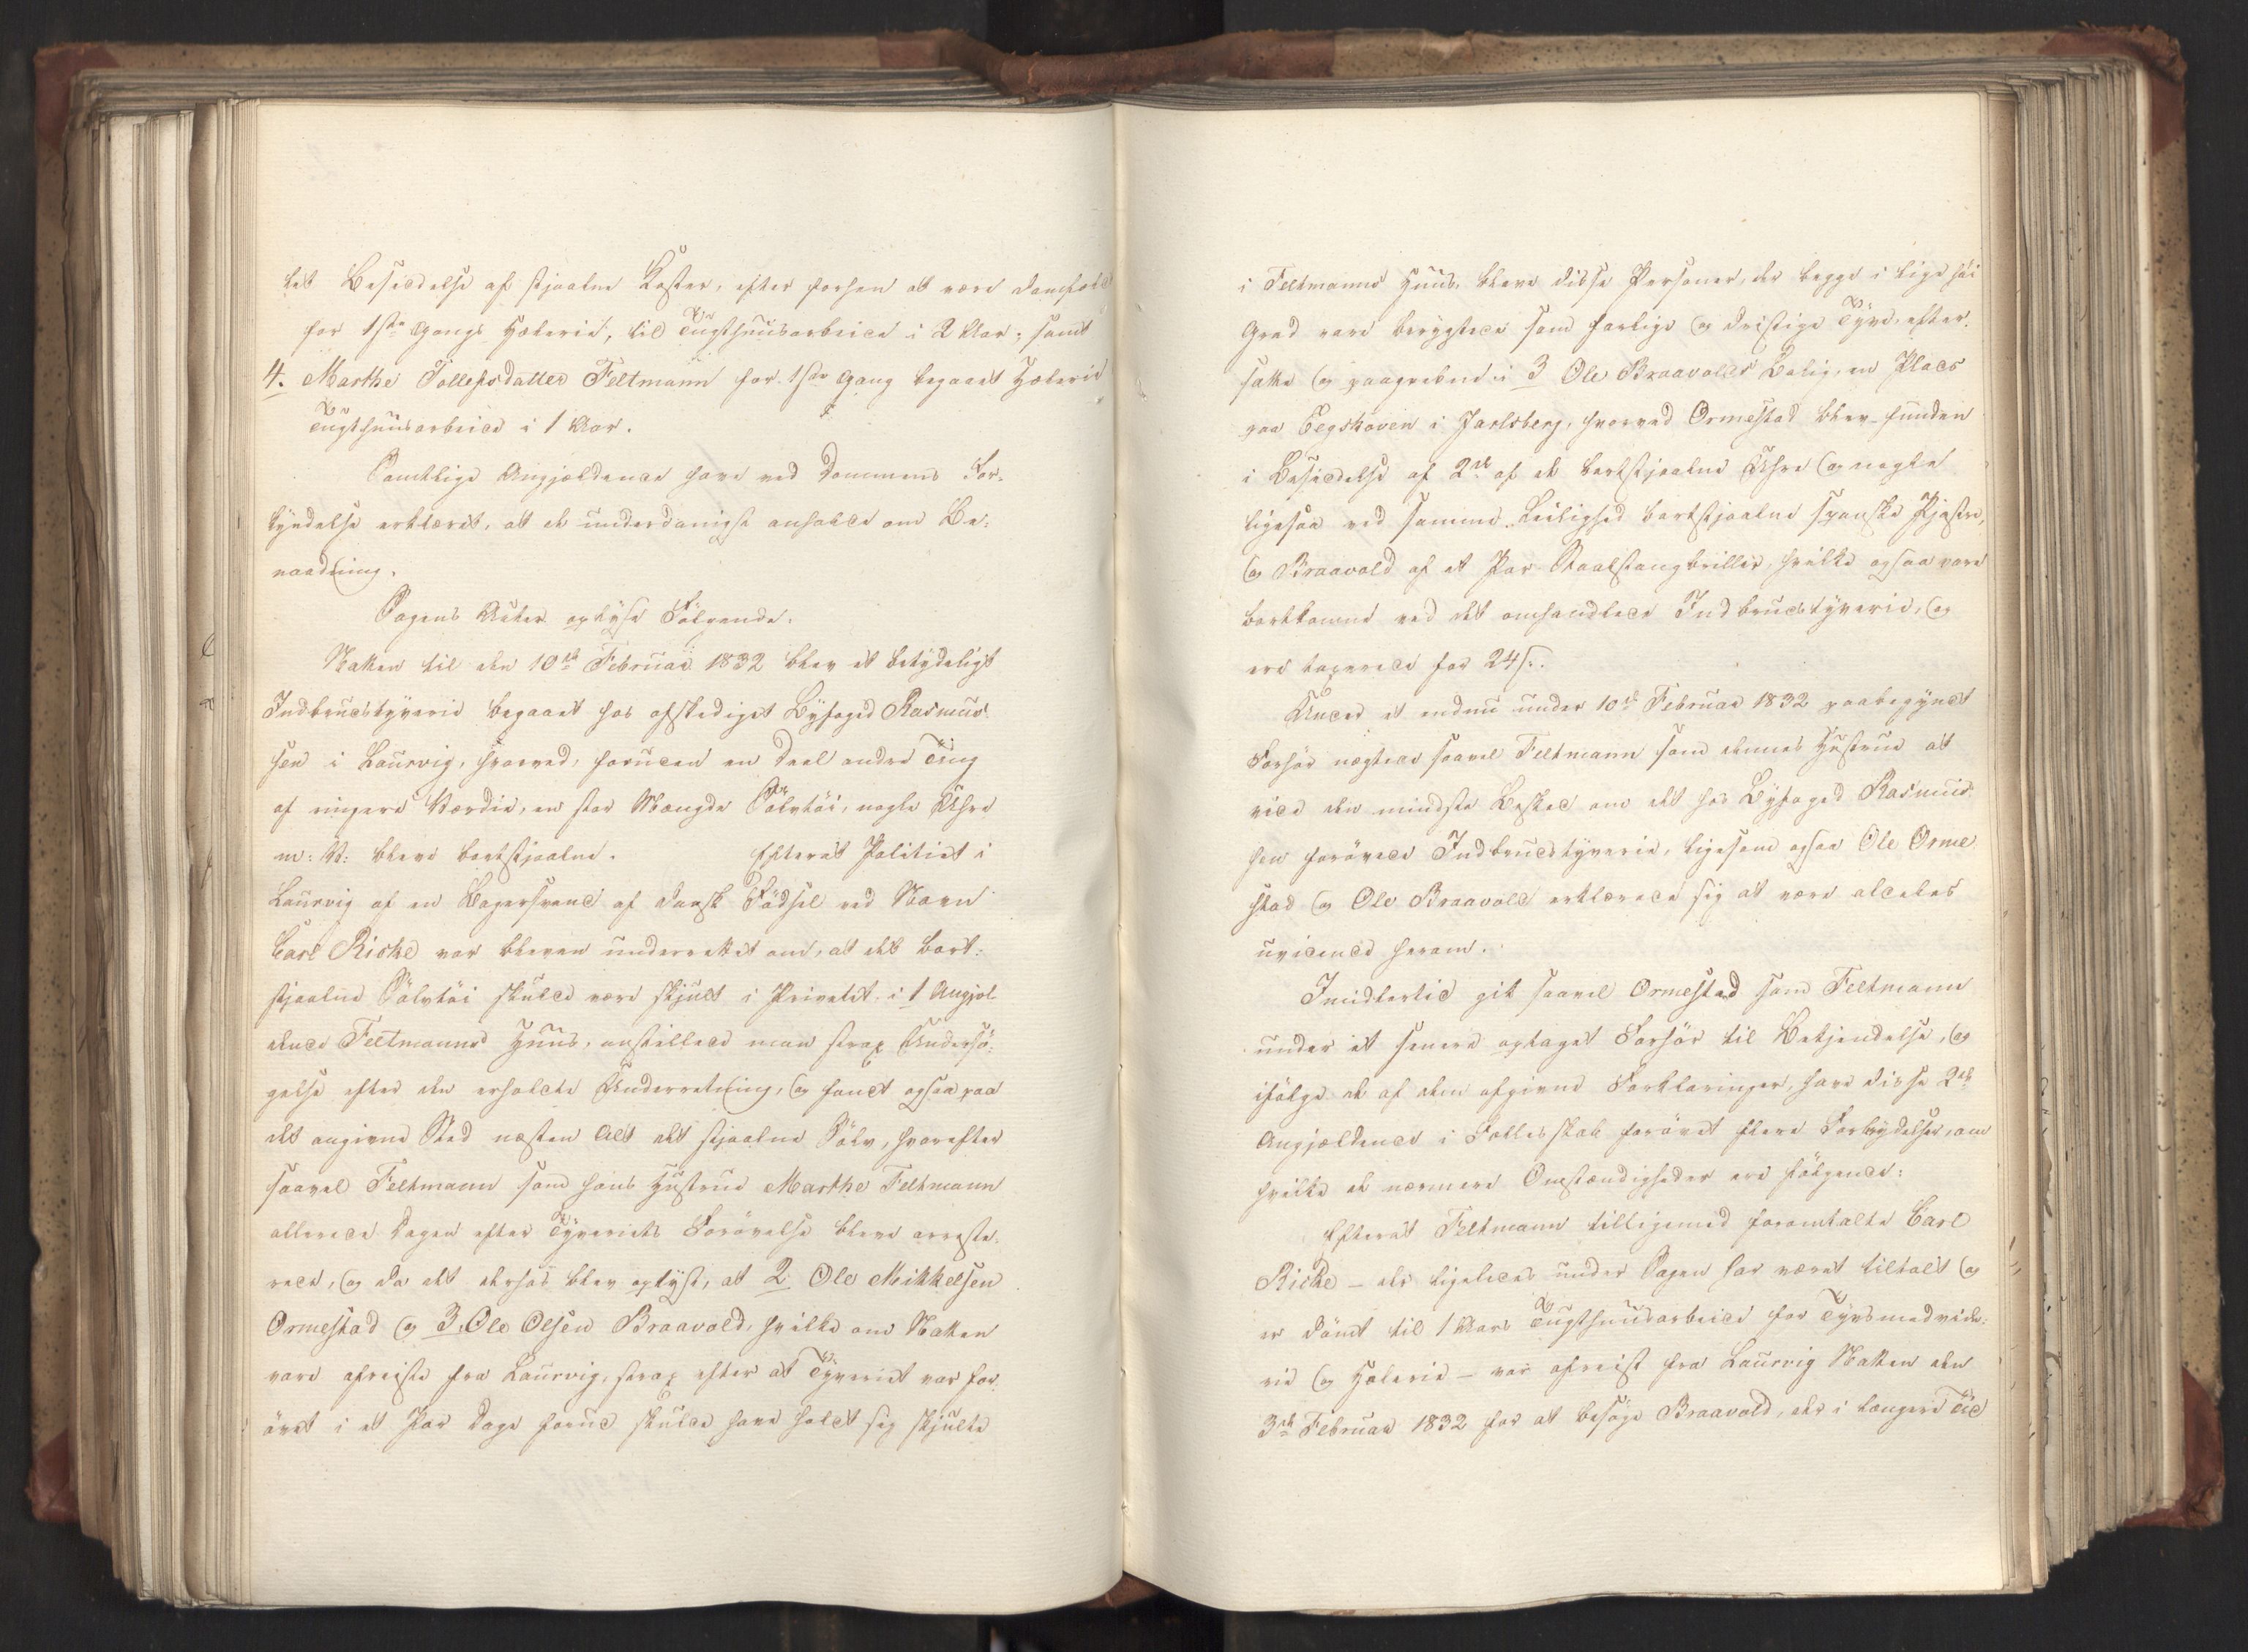 tet Besiddelse af stjaalne Koster, efter forhen at være domfældt
for 1ste Gangs Hæleri, til Tugthuusarbeide i 2 Aar; samt
4. Marthe Tollefsdatter Feltmann for 1ste Gang begaaet Hæleri
Tugthuusarbeide i 1 Aar.
Samtlige Angjældende have ved Dommens For-
kyndelse erklæret, at de underdanigst anholde om Be-
naadning.
Sagens Akter oplyse Følgende:
Natten til den 10de Februar 1832 blev et betydeligt
Indbrudstyverie begaaet hos afskediget Byfoged Rasmus-
sen i Laurvig, hvorved, foruden en Deel andre Ting
af ringere Værdie, en stor Mængde Sølvtøi, nogle Uhre
m: V: bleve bortstjaalne. Efterat Politiet i
Laurvig af en Bagersvend af dansk Fødsel ved Navn
Carl Riske var bleven underrettet om, at det bort-
stjaalne Sølvtøi skulde være skjult i Privetet i 1 Angjæl-
dende Feltmanns Huus, anstillede man strax Undersø-
gelse efter den erholdte Underretning, og fandt ogsaa paa
det angivne Sted næsten Alt det stjaalne Sølv, hvorefter
saavel Feltmann som hans Hustrue Marthe Feltmann
allerede Dagen efter Tyveriets Forøvelse bleve arreste-
rede, og da det derhos blev oplyst, at 2 Ole Mikkelsen
Ormestad og 3. Ole Olsen Braavold, hvilke om Natten
vare afreiste fra Laurvig, strax efter at Tyveriet var for-
øvet i et Par Dage forud skulde have holdt sig skjulte
i Feltmanns Huus, bleve disse Personer, der begge i lige høi
Grad vare berygtede som farlige og dristige Tyve, efter-
satte og paagrebne i 3 Ole Braavolds Bolig, en Plads
paa Eegskoven i Jarlsberg, hvorved Ormestad blev funden
i Besiddelse af 2de af de bortstjaalne Uhre og nogle
ligesaa ved samme Leilighed bortstjaalne spanske Pjastre,
og Braavold af et Par Staalstangbriller, hvilke ogsaa vare
bortkomne ved det omhandlede Indbrudstyverie, og
ere taxerede for 24 s.
Under et endnu under 10de Februar 1832 paabegyndt
Forhør nægtede saavel Feltmann som dennes Hustrue at
vide den mindste Besked om det hos Byfoged Rasmus-
sen forøvede Indbrudstyverie, ligesom ogsaa Ole Orme-
stad og Ole Braavold erklærede sig at være aldeles
uvidende herom.
Imidlertid gik saavel Ormestad som Feltmann
under et senere optaget Forhør til Bekjendelse, og
ifølge de af dem afgivne Forklaringer, have disse 2de
Angjældende i Fællesskab forøvet flere Forbrydelser, om
hvilke de nærmere Omstændigheder ere følgende:
Efterat Feltmann tilligemed foromtalte Carl
Riske – der ligeledes under Sagen har været tiltalt og
er dømt til 1 Aars Tugthuusarbeide for Tyvsmedvide-
rie og Hælerie – var afreist fra Laurvig Natten den
3de Februar 1832 for at besøge Braavold, der i længere Tid